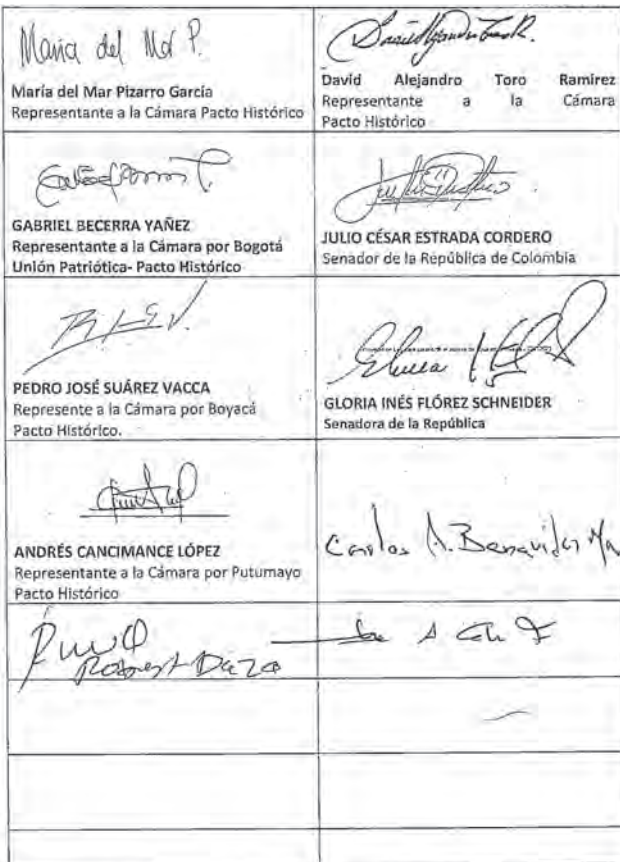 María del Mar P.
María del Mar Pizarro García
Representante a la Cámara Pacto Histórico
David Alejandro Toro Ramirez
Representante a la Cámara
Pacto Histórico
GABRIEL BECERRA YAÑEZ
Representante a la Cámara por Bogotá
Unión Patriótica- Pacto Histórico
JULIO CÉSAR ESTRADA CORDERO
Senador de la República de Colombia
PEDRO JOSÉ SUÁREZ VACCA
Represente a la Cámara por Boyacá
Pacto Histórico.
GLORIA INÉS FLÓREZ SCHNEIDER
Senadora de la República
ANDRÉS CANCIMANCE LÓPEZ
Representante a la Cámara por Putumayo
Pacto Histórico
Carlos A. Benavides
Robert Daza